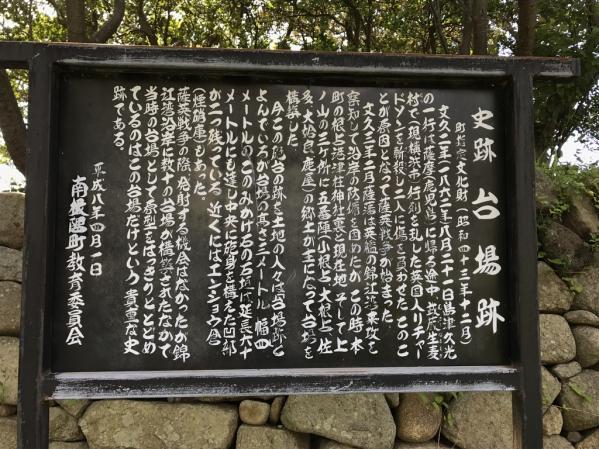 史跡 台場跡
町指定文化財(昭和四十三年十二月)
文久二年(一八六二)年八月二十一日島津久光
の一行は薩摩(鹿児島)に帰る途中、武蔵生麦
村で(現横浜市)行列を乱した英国人リチャー
ドソンを斬殺し二人に傷を負わせた。このこ
とが原因となって薩英戦争が始まった。
文久三年二月薩藩は英艦の錦江湾来攻を
察知して沿岸の防備を固めたが、この時本
町の根占港諏訪社裏と現在地、そして上
ノ山の三ケ所に五番隊(小根占、大根占、佐
多、大姶良、鹿屋)の郷士が主になって台場を
構築した。
今この砲台跡を土地の人々は台場跡と
よんでいるが台場の高さ三メートル、幅四
メートルのこのみかげ石の石垣は延長六十
メートルにも達し中央に砲身を構えた凹部
が二つ残っている。近くにはエンショウ倉
(煙硝庫)もあった。
薩英戦争の際、発射する機会はなかったが錦
江湾沿岸に数十の台場が構築されたなかで
当時の台場として原型をはっきりととどめ
ているのはこの台場だけという貴重な史
跡である。
平成八年四月一日
南大隅町教育委員会